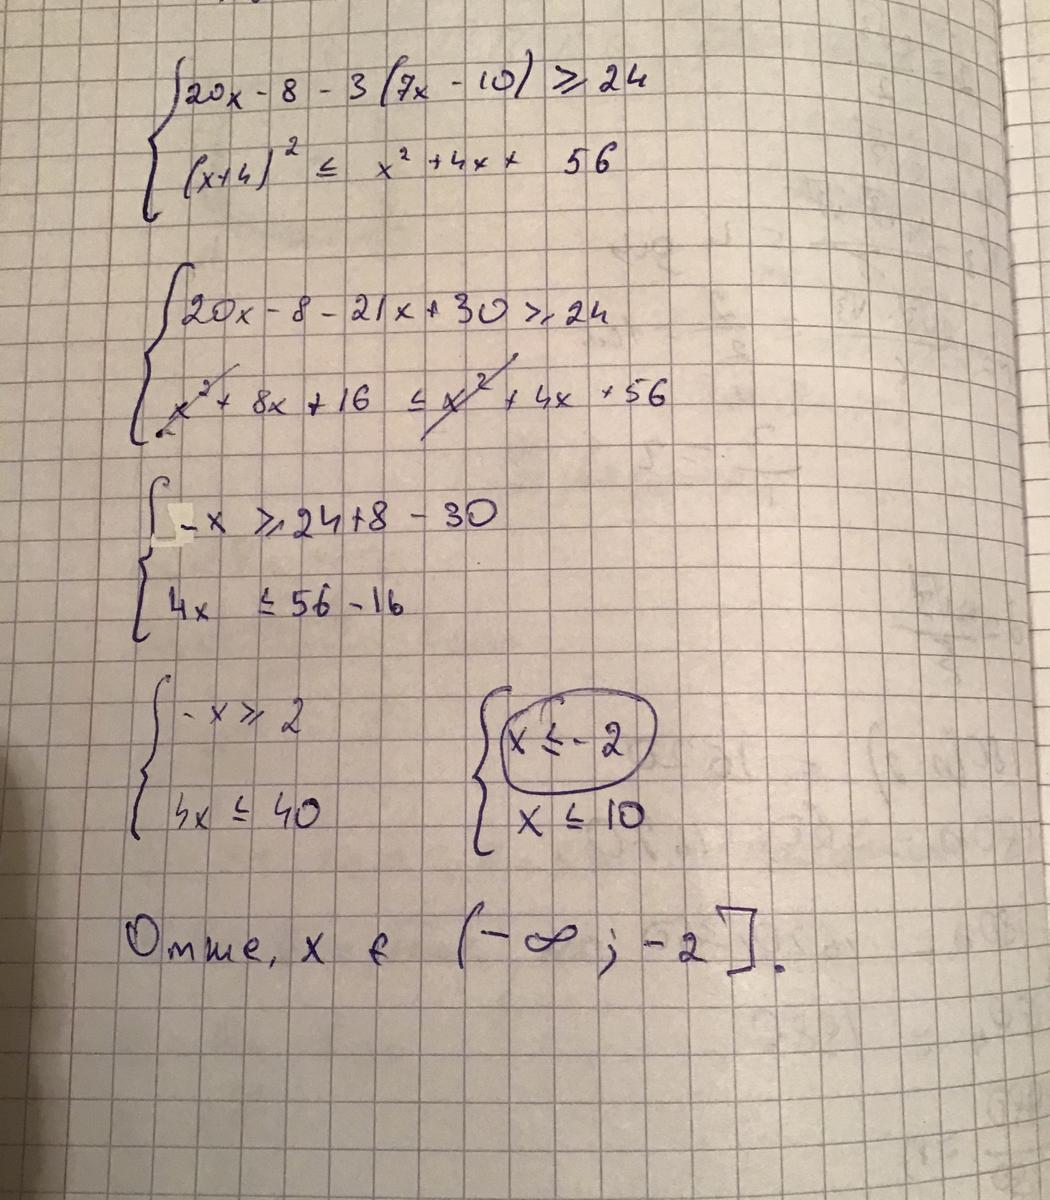 20x - 8 - 3(7x - 10) ⩾ 24
(x+4)² ≤ x² + 4x + 56
20x - 8 - 21x + 30 ⩾ 24
x² + 8x + 16 ≤ x² + 4x + 56
-x ⩾ 24 + 8 - 30
4x ≤ 56 - 16
-x ⩾ 2
4x ≤ 40
x ≤ -2
x ≤ 10
Отже, x ∈ (-∞; -2].